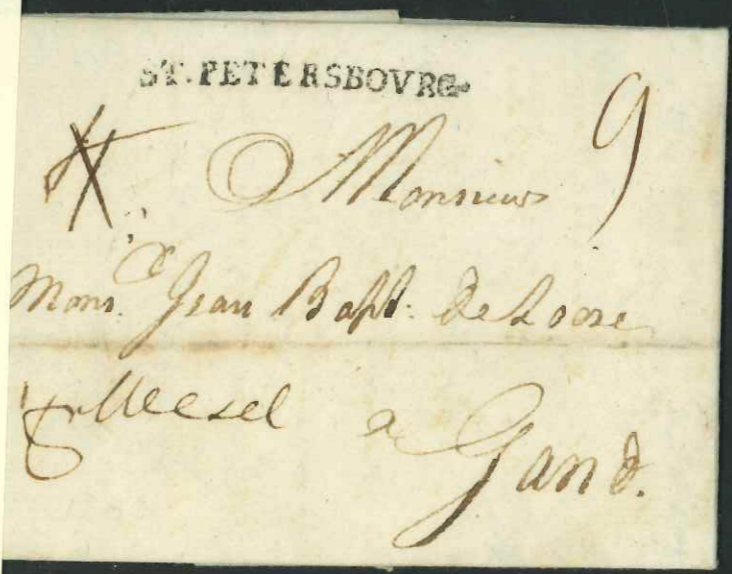 ST. PETERSBOVRG.
9
Monsieur
Mons.r Jean Bapt: de Loose
pr Wesel a Gand.